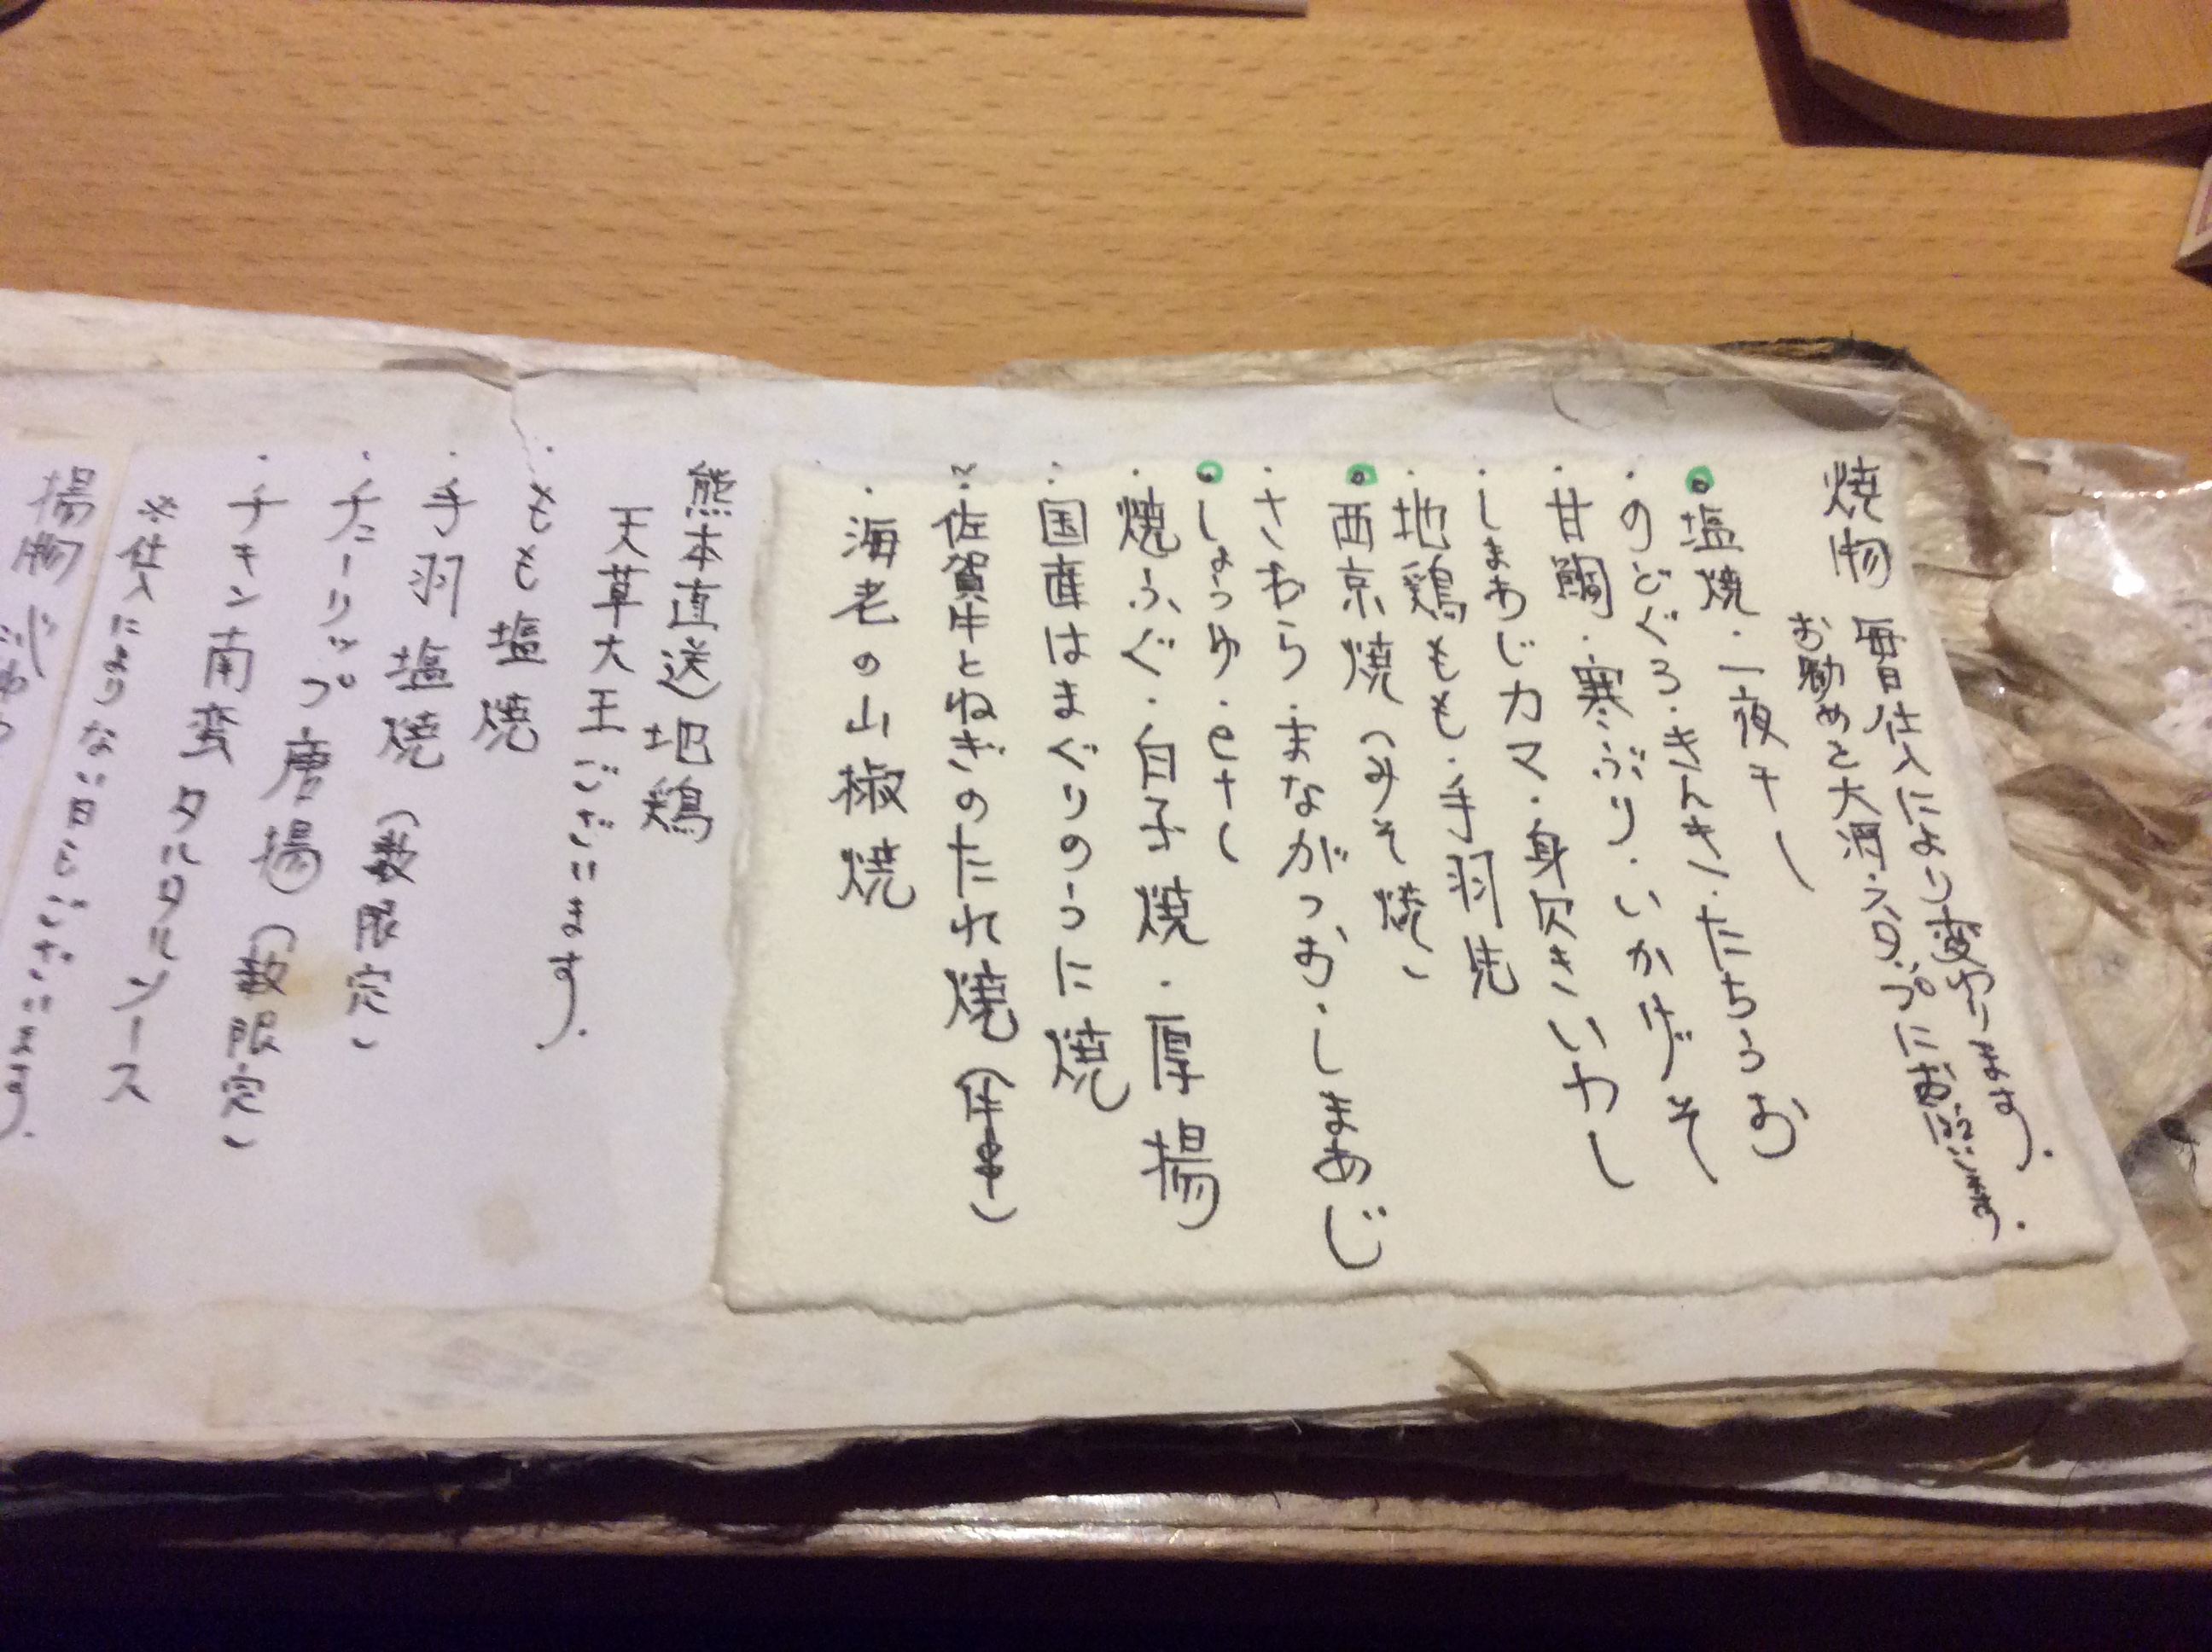 焼物 毎日仕入により変わります。
お勧めを大酒・うの・ぷにお点います。
◎塩焼・一夜干し
・のどぐろ・きんきん・たちうお
・甘鯛・寒ぶり・いかげそ
・しまあじカマ・身欠きいわし
・地鶏もも・手羽先
◎西京焼(みそ焼)
・さわら・まながつお・しまあじ
◎しょうゆ・だし
・焼ふぐ・白子焼・厚揚
・国産はまぐりのうに焼
・佐賀牛とねぎのたれ焼
・海老の山椒焼
熊本直送地鶏
天草大王ございます。
・もも塩焼
・手羽塩焼(数限定)
・チューリップ唐揚(数限定)
・チキン南蛮タルタルソース
※仕入によりない日もございます。
揚物